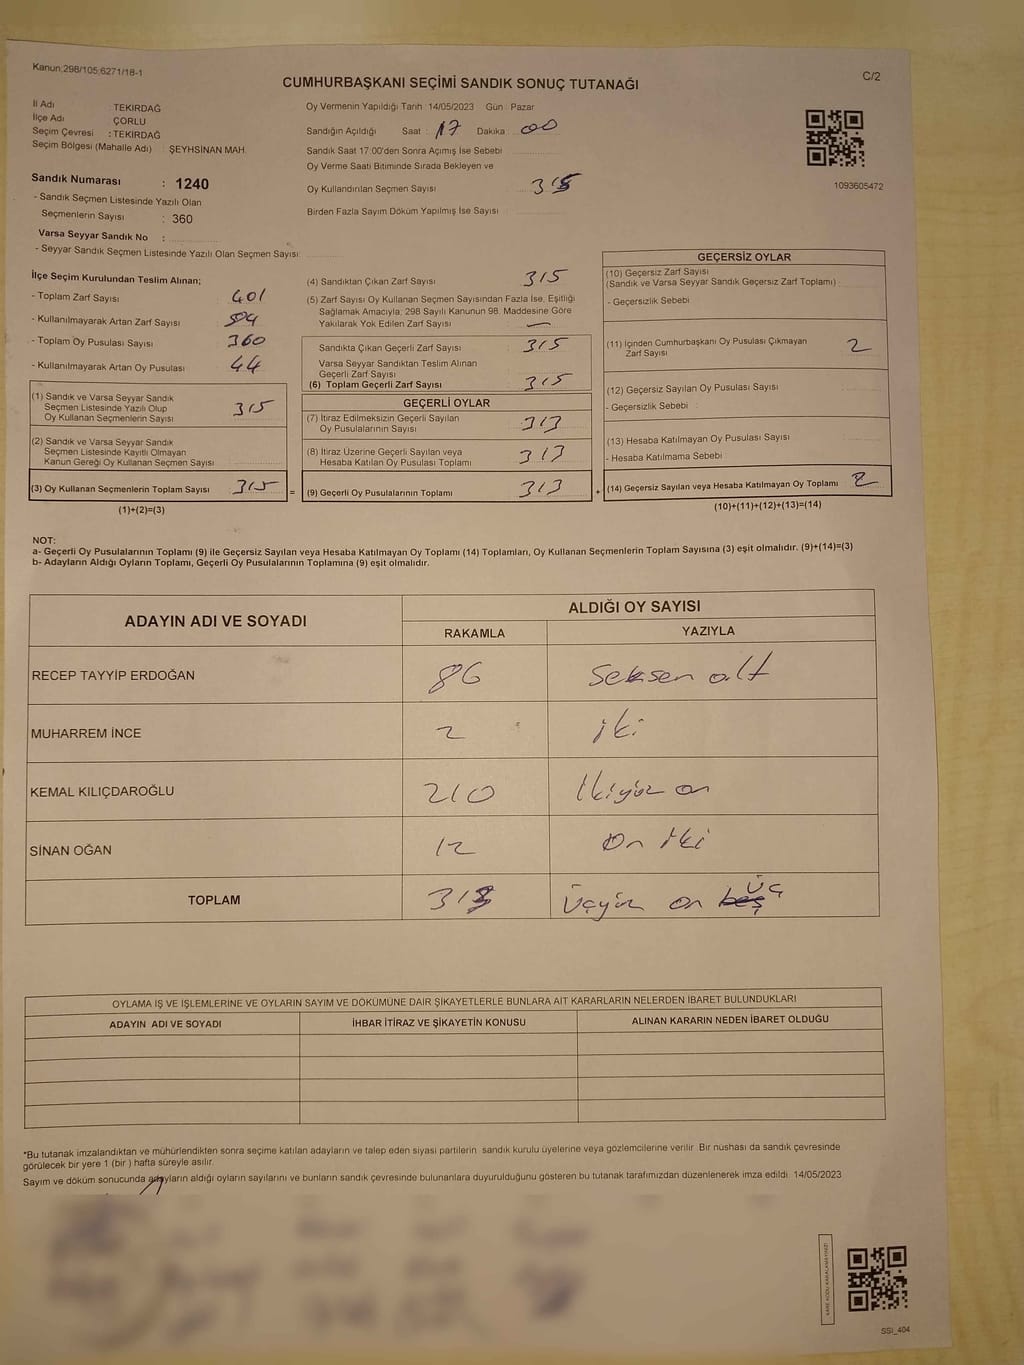 Kanun;298/105;6271/18-1
C/2
CUMHURBAŞKANI SEÇİMİ SANDIK SONUÇ TUTANAĞI
İl Adı TEKIRDAĞ
İlçe Adı ÇORLU
Seçim Çevresi : TEKIRDAĞ
Seçim Bölgesi (Mahalle Adı) : ŞEYHSİNAN MAH.
Oy Vermenin Yapıldığı Tarih : 14/05/2023 Gün : Pazar
Sandığın Açıldığı Saat : 17 Dakika : 00
Sandık Saat 17:00'den Sonra Açımış İse Sebebi
Oy Verme Saati Bitiminde Sırada Bekleyen ve
Oy Kullandırılan Seçmen Sayısı 315
Birden Fazla Sayım Döküm Yapılmış İse Sayısı :
1093605472
Sandık Numarası : 1240
- Sandık Seçmen Listesinde Yazılı Olan
Seçmenlerin Sayısı : 360
Varsa Seyyar Sandık No :
- Seyyar Sandık Seçmen Listesinde Yazılı Olan Seçmen Sayısı:
İlçe Seçim Kurulundan Teslim Alınan;
- Toplam Zarf Sayısı 401
- Kullanılmayarak Artan Zarf Sayısı
- Toplam Oy Pusulası Sayısı 360
- Kullanılmayarak Artan Oy Pusulası 44
(1) Sandık ve Varsa Seyyar Sandık
Seçmen Listesinde Yazılı Olup
Oy Kullanan Seçmenlerin Sayısı 315
(2) Sandık ve Varsa Seyyar Sandık
Seçmen Listesinde Kayıtlı Olmayan
Kanun Gereği Oy Kullanan Seçmen Sayısı
(3) Oy Kullanan Seçmenlerin Toplam Sayısı 315 =
(1)+(2)=(3)
(4) Sandıktan Çıkan Zarf Sayısı 315
(5) Zarf Sayısı Oy Kullanan Seçmen Sayısından Fazla İse, Eşitliği
Sağlamak Amacıyla; 298 Sayılı Kanunun 98. Maddesine Göre
Yakılarak Yok Edilen Zarf Sayısı —
Sandıkta Çıkan Geçerli Zarf Sayısı 315
Varsa Seyyar Sandıktan Teslim Alınan
Geçerli Zarf Sayısı
(6) Toplam Geçerli Zarf Sayısı 315
GEÇERLİ OYLAR
(7) İtiraz Edilmeksizin Geçerli Sayılan
Oy Pusulalarının Sayısı 313
(8) İtiraz Üzerine Geçerli Sayılan veya
Hesaba Katılan Oy Pusulası Toplamı 313
(9) Geçerli Oy Pusulalarının Toplamı 313 +
GEÇERSİZ OYLAR
(10) Geçersiz Zarf Sayısı
(Sandık ve Varsa Seyyar Sandık Geçersiz Zarf Toplamı)
- Geçersizlik Sebebi
(11) İçinden Cumhurbaşkanı Oy Pusulası Çıkmayan
Zarf Sayısı 2
(12) Geçersiz Sayılan Oy Pusulası Sayısı
- Geçersizlik Sebebi :
(13) Hesaba Katılmayan Oy Pusulası Sayısı
- Hesaba Katılmama Sebebi
(14) Geçersiz Sayılan veya Hesaba Katılmayan Oy Toplamı 2
(10)+(11)+(12)+(13)=(14)
NOT:
a- Geçerli Oy Pusulalarının Toplamı (9) ile Geçersiz Sayılan veya Hesaba Katılmayan Oy Toplamı (14) Toplamları, Oy Kullanan Seçmenlerin Toplam Sayısına (3) eşit olmalıdır. (9)+(14)=(3)
b- Adayların Aldığı Oyların Toplamı, Geçerli Oy Pusulalarının Toplamına (9) eşit olmalıdır.
ADAYIN ADI VE SOYADI
ALDIĞI OY SAYISI
RAKAMLA YAZIYLA
RECEP TAYYİP ERDOĞAN 86 Seksen alt
MUHARREM İNCE 2 iki
KEMAL KILIÇDAROĞLU 210 İkiyüz on
SİNAN OĞAN 12 On iki
TOPLAM 313 Üçyüz on beş üç
OYLAMA İŞ VE İŞLEMLERİNE VE OYLARIN SAYIM VE DÖKÜMÜNE DAİR ŞİKAYETLERLE BUNLARA AİT KARARLARIN NELERDEN İBARET BULUNDUKLARI
ADAYIN ADI VE SOYADI İHBAR İTİRAZ VE ŞİKAYETİN KONUSU ALINAN KARARIN NEDEN İBARET OLDUĞU
*Bu tutanak imzalandıktan ve mühürlendikten sonra seçime katılan adayların ve talep eden siyasi partilerin sandık kurulu üyelerine veya gözlemcilerine verilir. Bir nüshası da sandık çevresinde
görülecek bir yere 1 (bir ) hafta süreyle asılır.
Sayım ve döküm sonucunda adayların aldığı oyların sayılarını ve bunların sandık çevresinde bulunanlara duyurulduğunu gösteren bu tutanak tarafımızdan düzenlenerek imza edildi. 14/05/2023
SSI_404